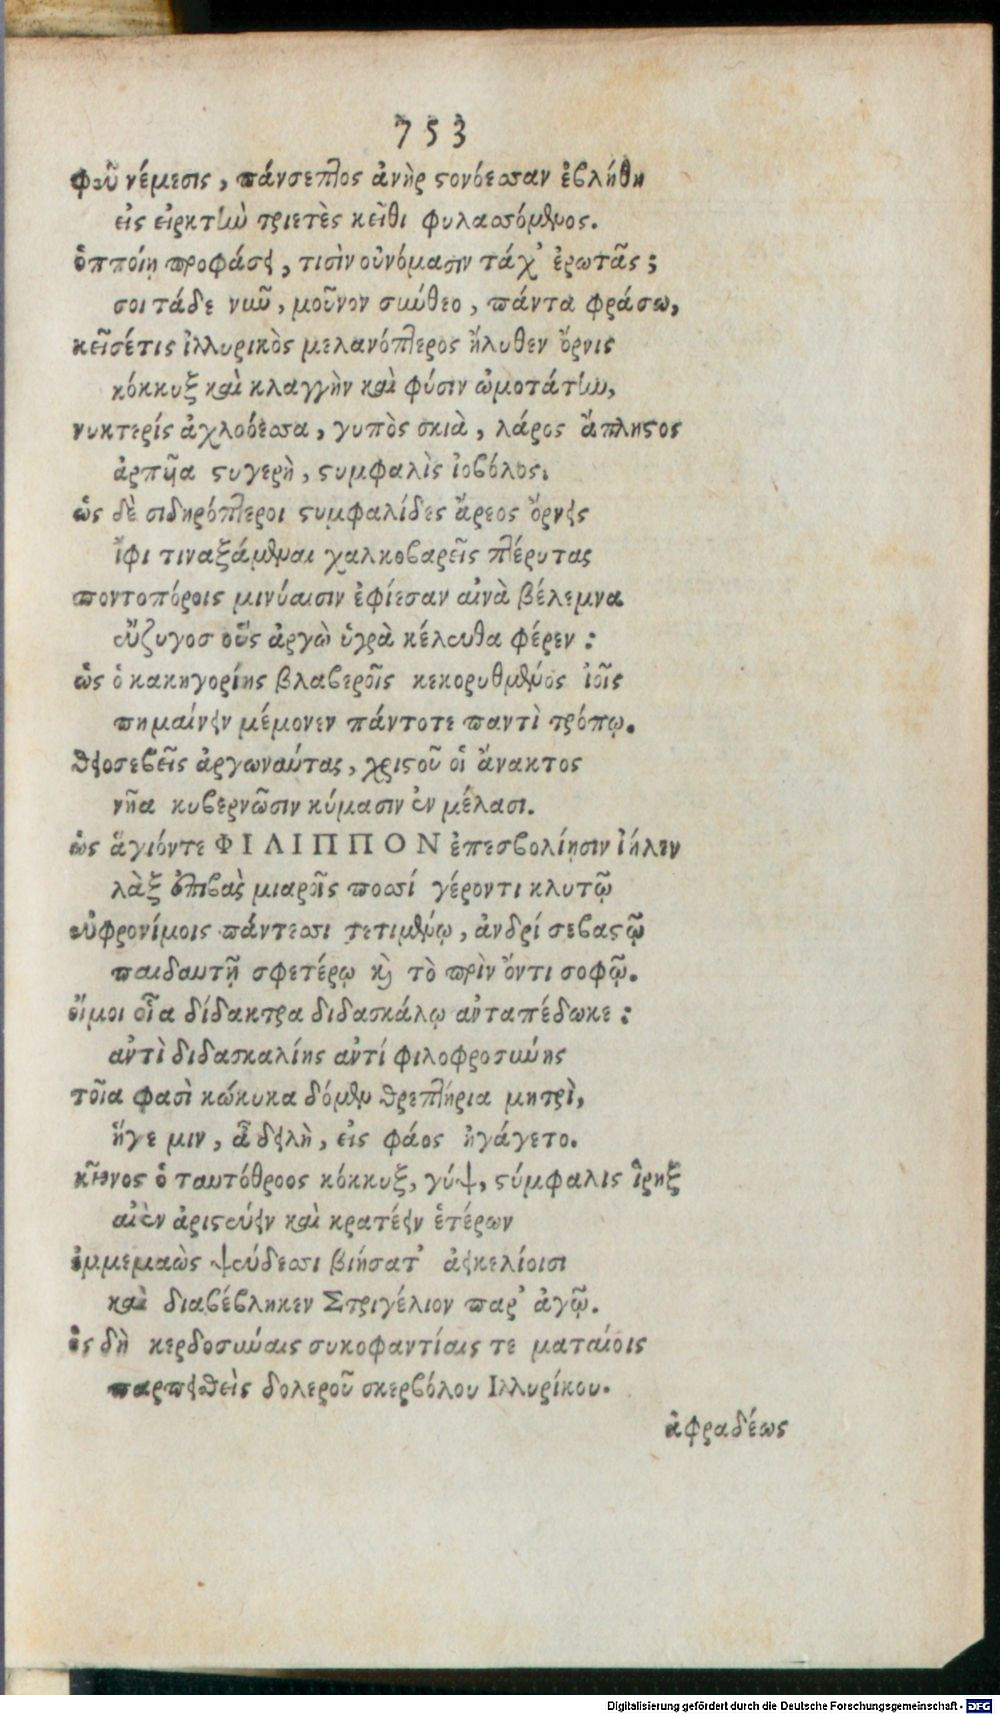 753
φεῦ νέμεσις, πάνσεπτος ἀνὴρ στονόεσσαν ἐβλήθη
εἰς εἰρκτὴν τριετὲς κεῖθι φυλασσόμενος.
ὁπποίῃ προφάσει, τισὶν οὐνόμασιν τάχ᾽ ἐρωτᾷς;
σοι τάδε νῦν, μοῦνον σύνθεο, πάντα φράσω,
κεῖσέτις ἰλλυρικὸς μελανόπτερος ἤλυθεν ὄρνις
κόκκυξ καὶ κλαγγὴν καὶ φύσιν ὠμοτάτην,
νυκτερίς ἀχλυόεσσα, γυπὸς σκιὰ, λάρος ἄπληστος
ἁρπῦα στυγερὴ, στυμφαλὶς ἰοβόλος.
ὡς δὲ σιδηρόπτεροι στυμφαλίδες ἄρεος ὄρνεις
ἶφι τιναξάμεναι χαλκοβαρεῖς πτέρυγας
ποντοπόροις μινύαισιν ἐφίεσαν αἰνὰ βέλεμνα
εὔζυγος οὓς ἀργὼ ὑγρὰ κέλευθα φέρεν:
ὣς ὁ κακηγορίης βλαβεροῖς κεκορυθμένος ἰοῖς
πημαίνειν μέμονεν πάντοτε παντὶ τρόπῳ.
θειοσεβεῖς ἀργωναύτας, χριστοῦ οἳ ἄνακτος
νῆα κυβερνῶσιν κύμασιν ἐν μέλασι.
ὡς ἅγιόντε ΦΙΛΙΠΠΟΝ ἐπεσβολίῃσιν ἴηλεν
λὰξ ἐπιβὰς μιαροῖς ποσσί γέροντι κλυτῷ
εὐφρονίμοις πάντεσσι τετιμένῳ, ἀνδρί σεβαστῷ
παιδευτῇ σφετέρῳ καὶ τὸ πρὶν ὄντι σοφῷ.
οἴμοι οἷα δίδακτρα διδασκάλῳ ἀνταπέδωκε:
ἀντὶ διδασκαλίης ἀντί φιλοφροσύνης
τοῖα φασὶ κώκυκα δόμεν θρεπτήρια μητρὶ,
ἥγε μιν, ἆ δειλὴ, εἰς φάος ἠγάγετο.
κεῖνος ὁ ταυτόθροος κόκκυξ, γύψ, στύμφαλις ἴρηξ
αἰὲν ἀριστεύειν καὶ κρατέειν ἑτέρων
ἐμμεμαὼς ψεύδεσσι βιήσατ᾽ ἀεικελίοισι
καὶ διαβέβληκεν Στριγέλιον παρ᾽ ἀγῷ.
ὃς δὴ κερδοσύναις συκοφαντίαις τε ματαίοις
παρπειθεὶς δολεροῦ σκερβόλου Ιλλυρίκου.
ἀφραδέως
Digitalisierung gefördert durch die Deutsche Forschungsgemeinschaft - DFG